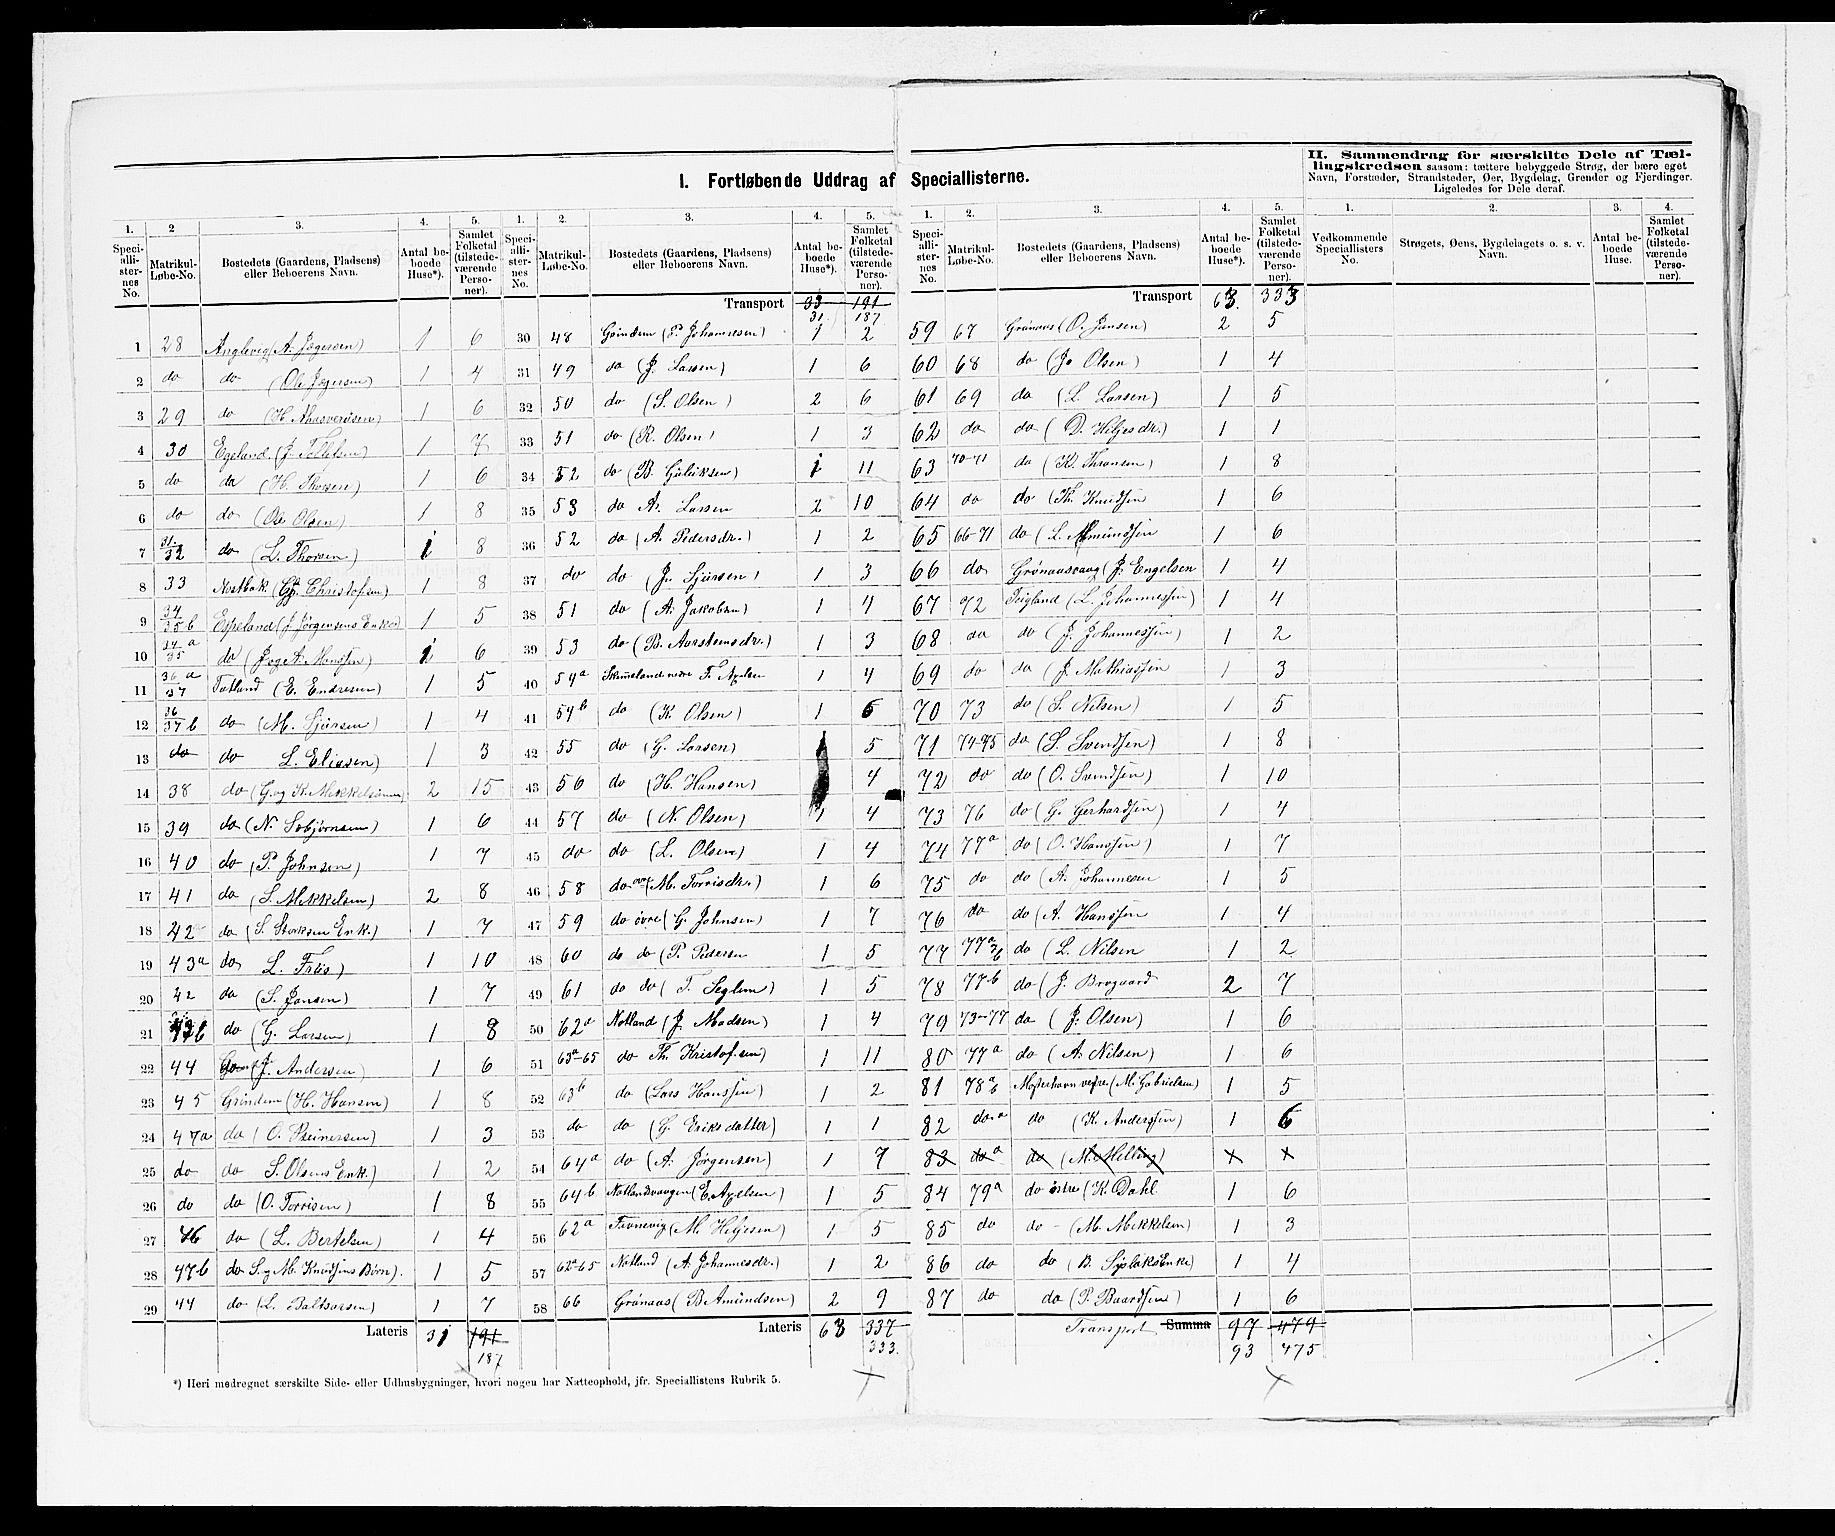 I. Fortløbende Uddrag af Speciallisterne.
II. Sammendrag for særskilte Dele af Tællingskredsen saasom: tættere bebyggede Strøg, der bære eget
Navn, Forstæder, Strandsteder, Øer, Bygdelag, Grender og Fjerdinger.
Ligeledes for Dele deraf.
1. 2 3. 4. 5.
Speciallisternes No. Matrikul-Løbe-No. Bostedets (Gaardens, Pladsens) eller Beboerens Navn. Antal beboede Huse*). Samlet Folketal (tilstedeværende Personer).
1 28 Anglevig (A. Jægersen) 1 6
2 do do (Ole Jægersen) 1 4
3 29 do (H. Ahasverøsen) 1 6
4 30 Egeland (J. Tollefsen) 1 7
5 do do (H. Thorsen) 1 6
6 do do (Ole Olsen) 1 8
7 31/32 do (L. Thorsen) 1 8
8 33 Nostbak (Christofsen) 1 8
9 34/35 b Espeland (J. Jørgensens Enke) 1 5
10 34/35 a do (J. og A. Monssen) 1 6
11 36/37 a Totland (E. Endresen) 1 5
12 36/37 b do (M. Sjursen) 1 4
13 do do L. Eliasen) 1 3
14 38 do (G. og K. Mikkelsønner) 2 15
15 39 do (N. Sobjørnsen) 1 6
16 40 do (P. Johnsen) 1 7
17 41 do (S. Mikkelsen) 2 8
18 42 do (S. Storksen Enk.) 1 7
19 43a do L. Friis) 1 10
20 42 do (S. Jansen) 1 7
21 do (G. Larsen) 1 8
22 44 (J. Andersen) 1 6
23 45 Grindem (H. Hansen) 1 8
24 47a do (O. Reinersen) 1 3
25 do do S. Olsens Enk.) 1 2
26 do do (O. Torrisen) 1 8
27 46 do (L. Bertelsen) 1 4
28 47b do S. og M. Knudsens Børn). 1 5
29 44 do (L. Baltsarsen) 1 7
Lateris 31 191
187
*) Heri medregnet særskilte Side- eller Udhusbygninger, hvori nogen har Natteophold, jfr. Speciallistens Rubrik 5.
1. 2. 3. 4. 5.
Speciallisternes No. Matrikul-Løbe-No. Bostedets (Gaardens, Pladsens) eller Beboerens Navn. Antal beboede Huse*). Samlet Folketal (tilstedeværende Personer).
Transport 33 191
31 187
30 48 Grindem (P. Johannesen) 1 2
31 49 do (J. Lassen) 1 6
32 50 do (S. Olsen) 2 6
33 51 do (R. Olsen) 1 3
34 52 do (B. Guliksen) 1 11
35 53 do A. Larsen 2 10
36 52 do (A. Pedersdr.) 1 2
37 do do (J. Sjursen) 1 3
38 51 do (A. Jakobsen) 1 4
39 53 do (B. Aarstensdr.) 1 3
40 54a Skimeland nedre F. Axelsen 1 4
41 54b do (K. Olsen) 1 6
42 55 do (G. Larsen) 5
43 56 do (H. Hansen) 4
44 57 do (N. Olsen) 1 4
45 do do (L. Olsen) 1 4
46 58 do (M. Torrisdr.) 1 6
47 59 do øvre (G. Johnsen) 1 7
48 60 do do (P. Pedersen 1 5
49 61 do do (T. Seglem) 1 5
50 62a Notland (J. Madsen) 1 4
51 63a-65 do Th. Kristofsen) 1 11
52 63b do (Lars Hanssen) 1 2
53 do do (G. Eriksdatter) 1 1
54 64a do (A. Jørgensen) 1 7
55 64b Notlandsvaagen (E. Axelsen) 1 5
56 62a (M. Heljesen) 1 5
57 62a-65 Notland (A. Johannesdr.) 1 2
58 66 Grønaas (B. Amundsen) 2 9
Lateris 63 337
333.
1. 2. 3. 4. 5.
Speciallisternes No. Matrikul-Løbe-No. Bostedets (Gaardens, Pladsens) eller Beboerens Navn. Antal beboede Huse*). Samlet Folketal (tilstedeværende Personer).
Transport 63 333
59 67 Grønaas (O. Jansen) 2 5
60 68 do (Jo Olsen) 1 4
61 69 do (L. Larsen) 1 5
62 do do (D. Heljesdr.) 1 1
63 70-71 do (K. Thronsen) 1 8
64 do do (Th. Knudsen 1 6
65 66-71 do (L. Amundsen 1 6
66 do Grønaasvaag (J. Engelsen 1 4
67 72 Teigland (L. Johannessen) 1 4
68 do do (J. Johannessen) 1 2
69 do do (J. Mathiassen 1 3
70 73 do (S. Nilsen) 1 5
71 74-75 do (S. Svendsen) 1 8
72 do do (O. Svendsen) 1 10
73 76 do (G. Gerhardsen) 1 4
74 77a do (O. Hanssen) 1 7
75 do do (A. Johannesen 1 5
76 do do (A. Hanssen 1 4
77 77a/b do (L. Nilsen 1 2
78 77b do (J. Brogaard 2 7
79 73-77 do (J. Olsen) 1 6
80 77a do (A. Nilsen) 1 6
81 78a/b Mosterhavn vestre (M. Gabrielsen) 1 5
82 do a do (K. Anderssen) 1 6
83 do a do (M. Melling) x x
84 79a do østre (K. Dahl 1 6
85 do do - (M. Mikkelsen) 1 3
86 do do (B. Sjslaks Enke) 1 4
87 do do (P. Baardsen) 1 6
Transport Summa 97 479
93 475
1. 2. 3. 4.
Vedkommende Speciallisters No. Strøgets, Øens, Bygdelagets o. s. v. Navn. Antal beboede Huse. Samlet Folketal (tilstedeværende Personer).